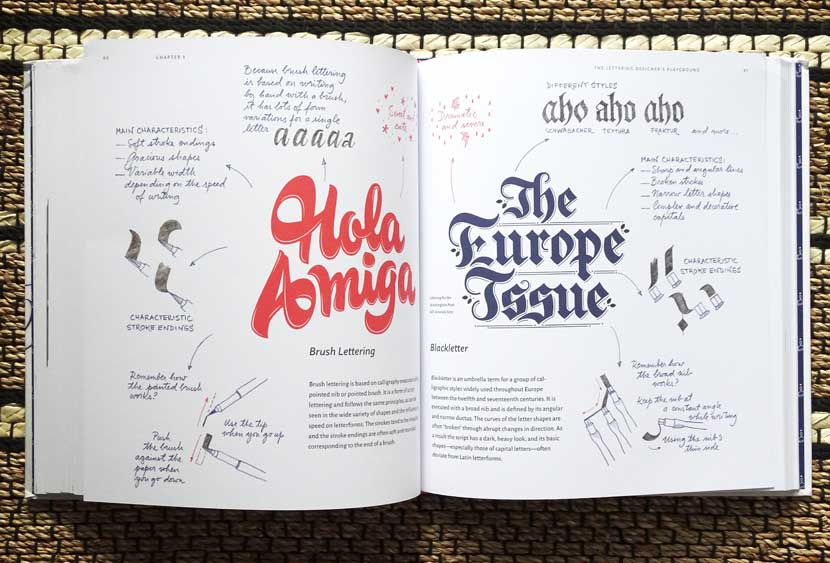 86
CHAPTER 5
Because brush lettering
is based on writing
by hand with a brush,
it has lots of form
variations for a single
letter
aaaaa
Sweet and
cute
MAIN CHARACTERISTICS:
— Soft stroke endings
— Gracious shapes
— Variable width
depending on the speed
of writing
Hola
Amiga
CHARACTERISTIC
STROKE ENDINGS
Brush Lettering
Remember how
the pointed brush
works?
Use the tip
when you go up
Push
the brush
against the
paper when
you go down
Brush lettering is based on calligraphy executed with
pointed nib or pointed brush. It is a form of script
lettering and follows the same principles, as can be
seen in the wide variety of shapes and the influence of
speed on letterforms. The strokes tend to be
and the stroke endings are often soft and rounded,
corresponding to the end of a brush.
THE LETTERING DESIGNER'S PLAYGROUND
87
Dramatic
and severe
DIFFERENT STYLES
aho aho aho
SCHWABACHER TEXTURA FRAKTUR and more...
MAIN CHARACTERISTICS:
— Sharp and angular lines
— Broken strokes
— Narrow letter shapes
— Complex and decorative
capitals
The
Europe
Issue
CHARACTERISTIC
STROKE ENDINGS
Lettering for the
Washington Post
Blackletter
Blackletter is an umbrella term for a group of cal-
ligraphic styles widely used throughout Europe
between the twelfth and seventeenth centuries. It is
executed with a broad nib and is defined by its angular
and narrow ductus. The curves of the letter shapes are
often "broken" through abrupt changes in direction. As
a result the script has a dark, heavy look, and its basic
shapes—especially those of capital letters—often
deviate from Latin letterforms.
Remember how
the broad nib
works?
Keep the nib at
a constant angle
while writing
Using the nib's
thin side